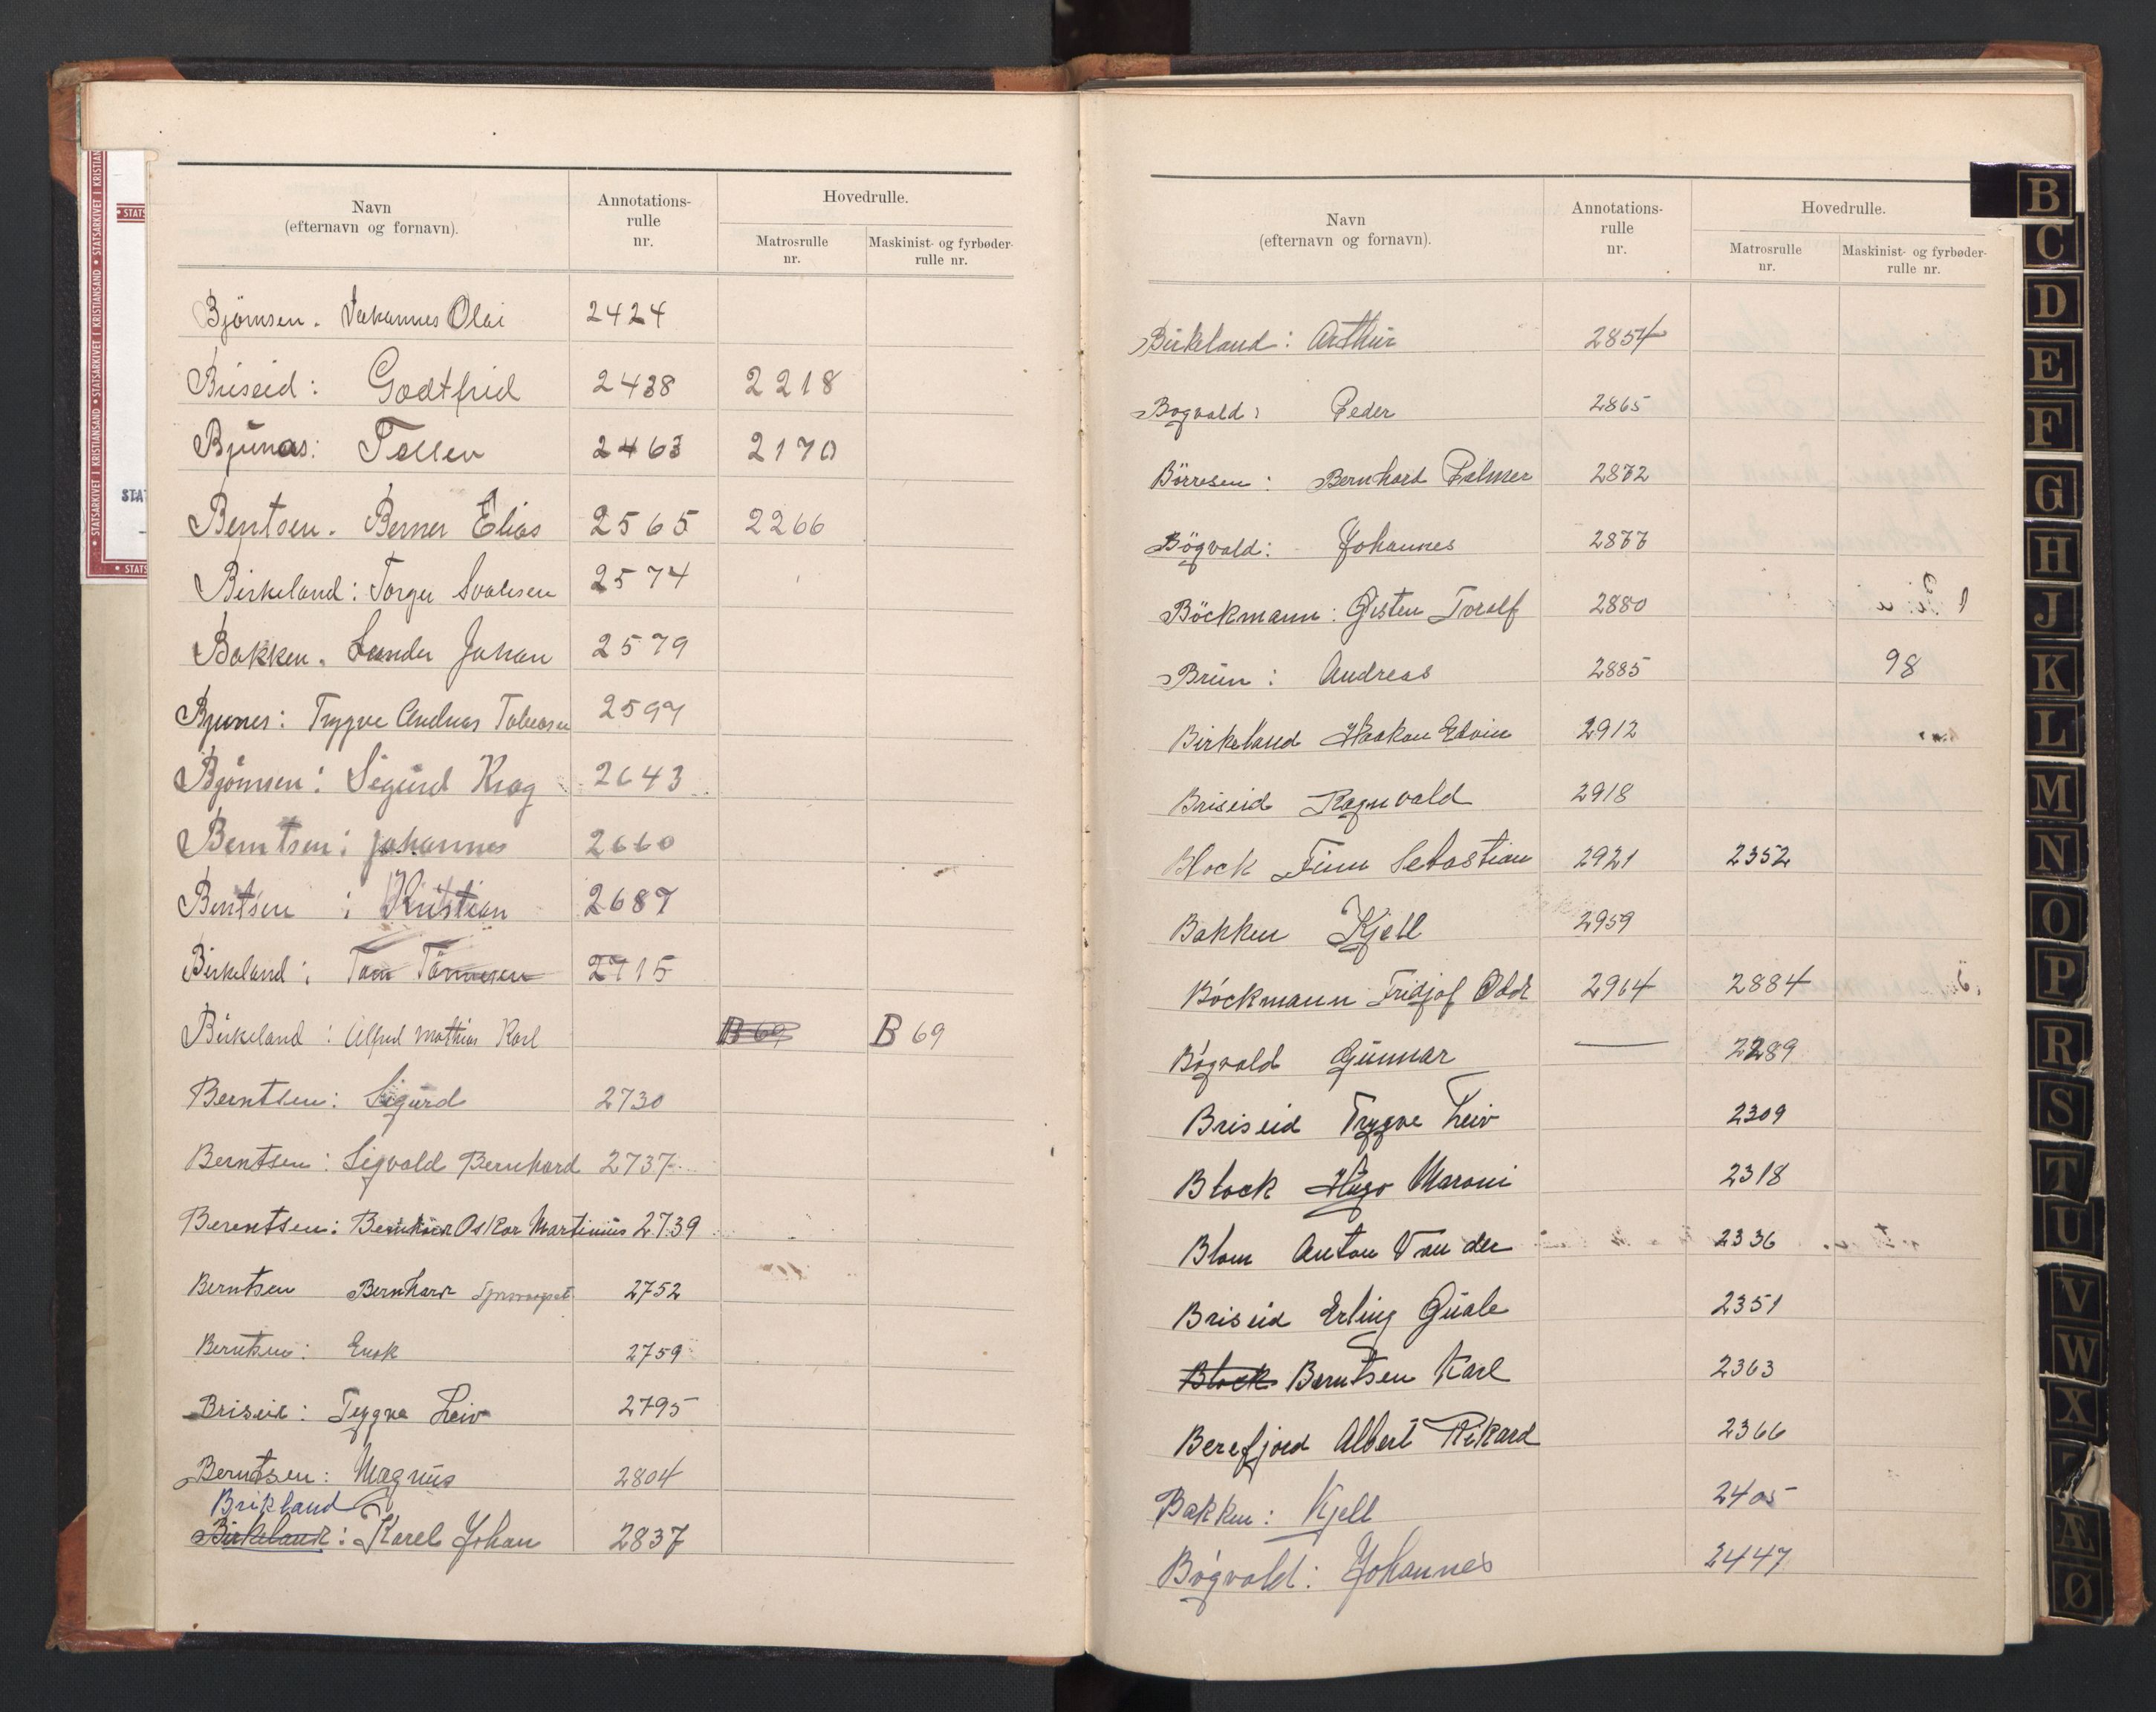 Navn
(efternavn og fornavn).
Annotations-
rulle
nr.
Hovedrulle.
Matrosrulle
nr.
Maskinist- og fyrbøder-
rulle nr.
Björnsen. Johannes Olai 2424
Briseid: Godtfrid 2438 2218
Bjunes: Tellev 2463 2170
Bentsen. Berner Elias 2565 2266
Birkeland: Torger 2574
Bakken. Sander Johan 2579
Bjunes: Trygve Andreas Tobiasen 2597
Björnsen: Sigurd Krag 2643
Berntsen: Johannes 2660
Bentsen: Kristian 2687
Birkeland: Tom Tönnesen 2715
Birkeland: Alfred Mathias Karl B 69 B 69
Berntsen: Sigurd 2730
Berntsen: Sigvald Bernhard 2737
Berentsen: Bernhard Oskar Martinius 2739
Berntsen Bernhard 2752
Berntsen: Enok 2759
Briseid: Tryggve Leiv 2795
Berntsen: Magnus 2804
Brikland
Birkeland: Karel Johan 2837
Navn
(efternavn og fornavn).
Annotations-
rulle
nr.
Hovedrulle.
Matrosrulle
nr.
Maskinist- og fyrbøder-
rulle nr.
Birkeland: Arthur 2854
Bøgvald: Peder 2865
Börresen: Bernhard Palmer 2872
Bögvald: Johannes 2877
Böckmann: Øisten Toralf 2880
Brun: Andreas 2885 98
Birkeland Haakon Edvin 2912
Briseid Ragnvald 2918
Block Finn Sebastian 2921 2352
Bakken Kjell 2959
Böckmann Fridjof Odd 2964 2884
Bøgvald Gunnar — 2289
Briseid Trygve Leiv 2309
Block Hugo Maroni 2318
Blom Anton Van der 2336
Briseid Erling Quale 2351
Block Berntsen Karl 2363
Berefjord Albert Rikard 2366
Bakken: Kjell 2405
Bøgvald: Johannes 2447
B
C
D
E
F
G
H
J
K
L
M
N
O
P
R
S
T
U
V
W
X
Æ
Ø
STATSARKIVET I KRISTIANSAND • STATSARKIVET I KRISTIANSAND • STATSARKIVET I KRISTIAN